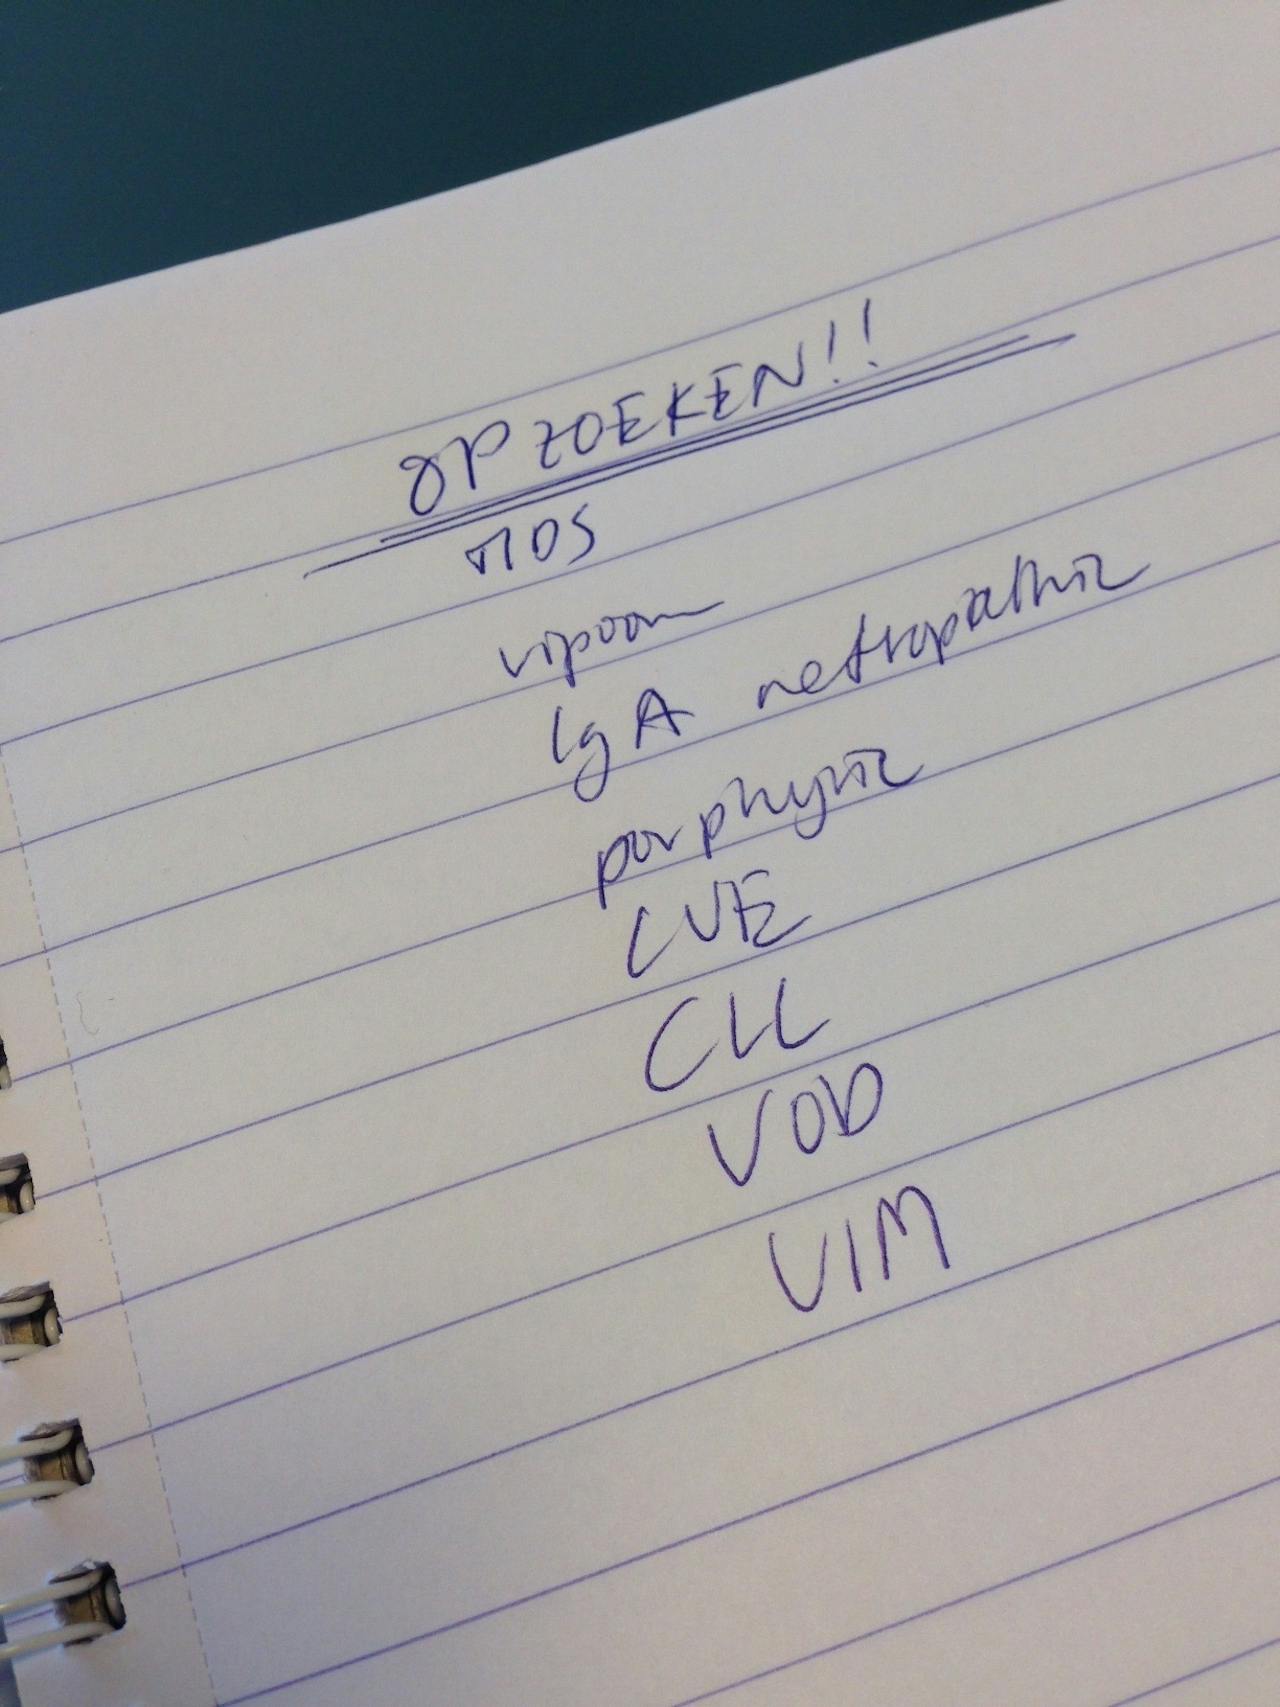 OPZOEKEN!!
MDS
vipoom
IgA nefropathie
porphyrie
CVE
CLL
VOD
VIM